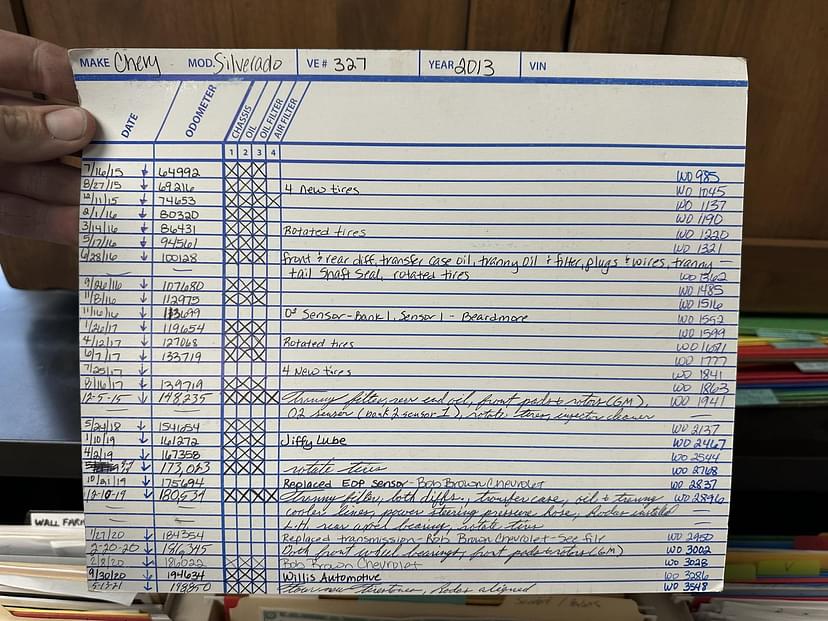 MAKE Chevy MOD. Silverado VE # 327 YEAR 2013 VIN
DATE ODOMETER CHASSIS OIL OIL FILTER AIR FILTER
1 2 3 4
7/16/15 ↓ 64992 XXX WO 985
8/27/15 ↓ 69216 XXX 4 new tires WO 1045
12/11/15 ↓ 74653 XXXX WO 1137
2/1/16 ↓ 80320 XXX WO 1190
3/14/16 ↓ 86431 XXX Rotated tires WO 1220
5/17/16 ↓ 94561 XXX WO 1321
6/28/16 ↓ 100128 XXX front & rear diff, transfer case oil, tranny oil & filter, plugs & wires, tranny —
— — tail shaft seal, rotated tires WO 1362
9/26/16 ↓ 107680 XXX WO 1485
11/8/16 ↓ 112975 XXX WO 1516
11/16/16 ↓ 113699 O² Sensor - Bank 1, Sensor 1 - Beardmore WO 1552
1/26/17 ↓ 119654 XXX WO 1599
4/12/17 ↓ 127068 XXX Rotated tires WO 1671
6/7/17 ↓ 133719 XXX WO 1777
7/25/17 ↓ 4 New tires WO 1841
8/16/17 ↓ 139719 XXX WO 1863
12-5-15 ↓ 148235 XXXX tranny filter, rear end oil, front pads & rotors (GM), WO 1941
— — O2 sensor (bank 2 sensor 1), rotate tires, injector cleaner —
5/24/18 ↓ 154654 XXX WO 2137
1/10/19 ↓ 161272 XXX Jiffy Lube WO 2467
4/2/19 ↓ 167358 XXX WO 2544
↓ 173,063 XXX rotate tires WO 2768
10/21/19 ↓ 175694 Replaced EOP sensor - Bob Brown Chevrolet WO 2837
12-10-19 ↓ 180,534 XXXX tranny filter, both diffs., transfer case, oil & tranny WO 2896
— — cooler lines, power steering pressure hose, installed —
— — L.H. rear bearing, rotate tires —
1/27/20 ↓ 184354 Replaced transmission - Bob Brown Chevrolet - See file WO 2950
2-20-20 ↓ Both front wheel bearings, front pads & rotors (GM) WO 3002
↓ 186022 XXX Bob Brown Chevrolet WO 3028
9/30/20 ↓ 194634 XXX Willis Automotive WO 3286
↓ XXX aligned WO 3548
WALL FAR